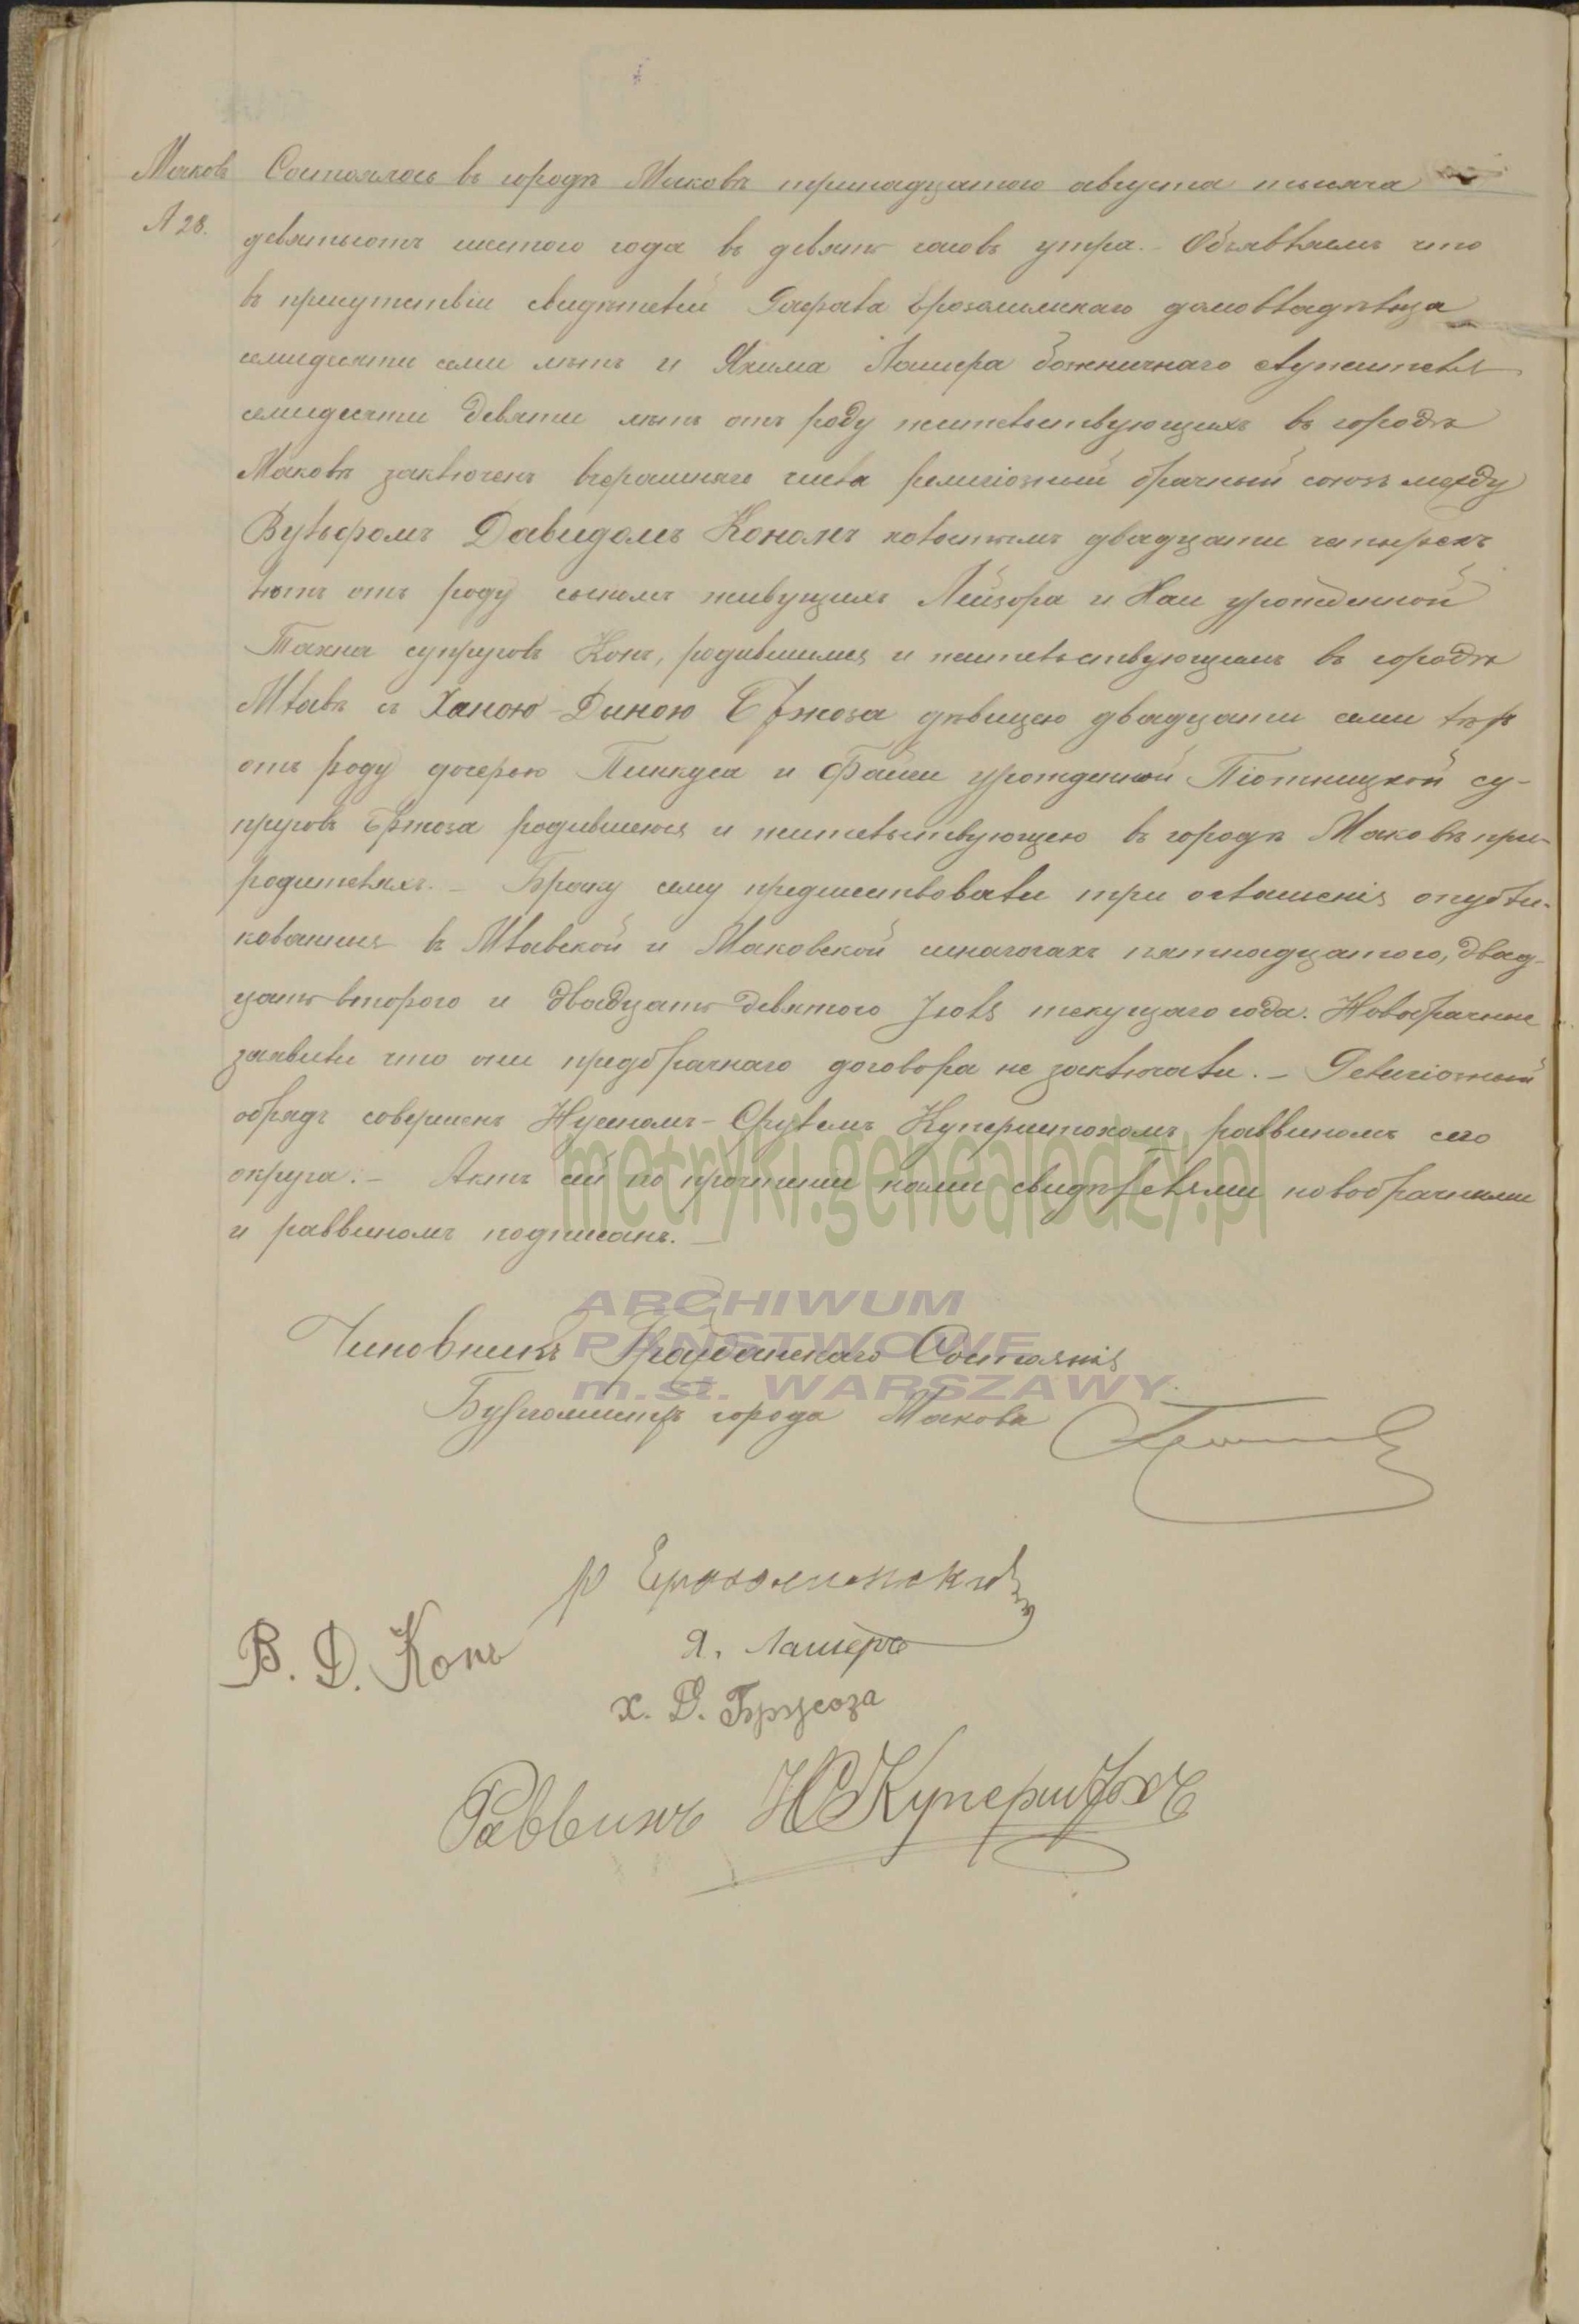 Маковъ Состоялось въ городѣ Маковѣ тринадцатого августа тысяча
А 28. девятьсотъ шестого года въ девять часовъ утра. Объявляемъ что
въ присутствіи свидѣтелей Рафала Ерозолимскаго домовладѣльца
семидесяти семи лѣтъ и Яхима Ляшера божничнаго служителя
семидесяти девяти лѣтъ отъ роду жительствующихъ въ городѣ
Маковѣ заключенъ вчерашняго числа религіозный брачный союзъ между
Вульфомъ Давидомъ Кономъ холостымъ двадцати четырехъ
лѣтъ отъ роду сыномъ живущихъ Лейзора и Хаи урожденной
Тахна супруговъ Конъ, родившимся и жительствующимъ въ городѣ
Млавѣ и Ханою-Дыною Бржоза дѣвицею двадцати семи лѣтъ
отъ роду дочерью Пинкуса и Файги урожденной Піотницкой су-
пруговъ Бржоза родившеюся и жительствующею въ городѣ Маковѣ при
родителяхъ. – Браку сему предшествовали три оглашенія опубли-
кованныя въ Млавской и Маковской синагогахъ пятнадцатого, двад-
цать второго и двадцать девятого Іюля текущаго года. Новобрачные
заявили что они предбрачнаго договора не заключали. – Религіозный
обрядъ совершенъ Нусномъ-Срулемъ Куперштохомъ раввиномъ сего
округа. – Актъ сей по прочтеніи нами свидѣтелями новобрачными
и раввиномъ подписанъ. –
metryki.genealodzy.pl
ARCHIWUM
PAŃSTWOWE
m.st. WARSZAWY
Чиновникъ Гражданскаго Состоянія
Бургомистръ города Макова
Р Ерозолимскій
В. Д. Конъ
Я. Ляшеръ
Х. Д. Бржоза
Раввинъ НС Куперштохъ